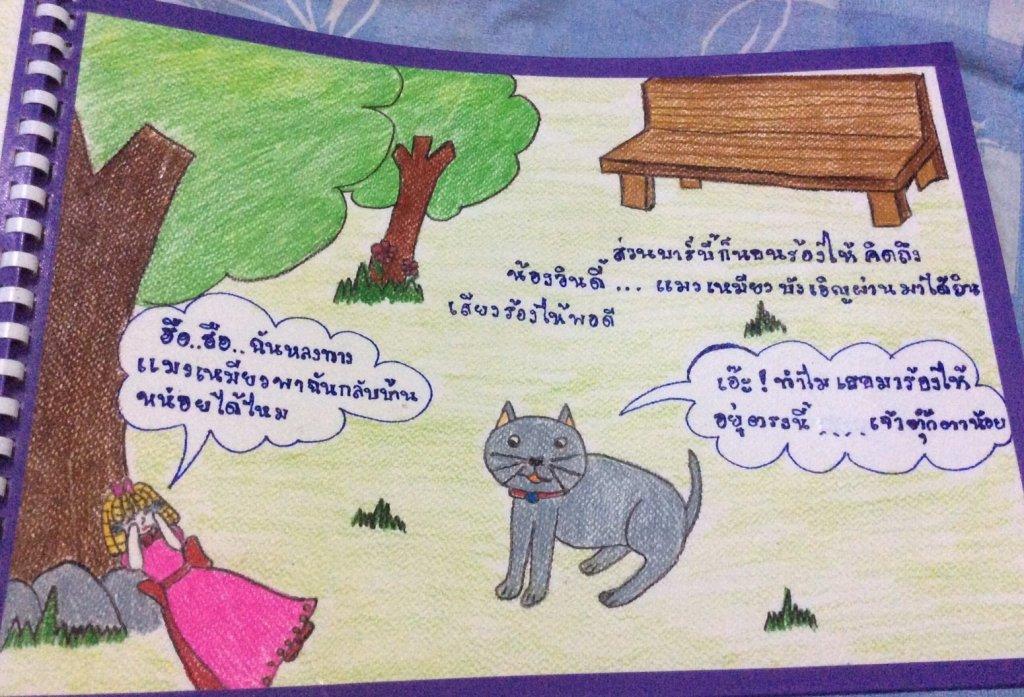 ส่วนบาร์บี้ก็นอนร้องไห้ คิดถึง
น้องวินดี้ ... แมวเหมียว บังเอิญผ่านมาได้ยิน
เสียงร้องไห้พอดี
ฮือ..ฮือ.. ฉันหลงทาง
แมวเหมียวพาฉันกลับบ้าน
หน่อยได้ไหม
เอ๊ะ ! ทำไม เธอมาร้องไห้
อยู่ตรงนี้ ..... เจ้าตุ๊กตาน้อย